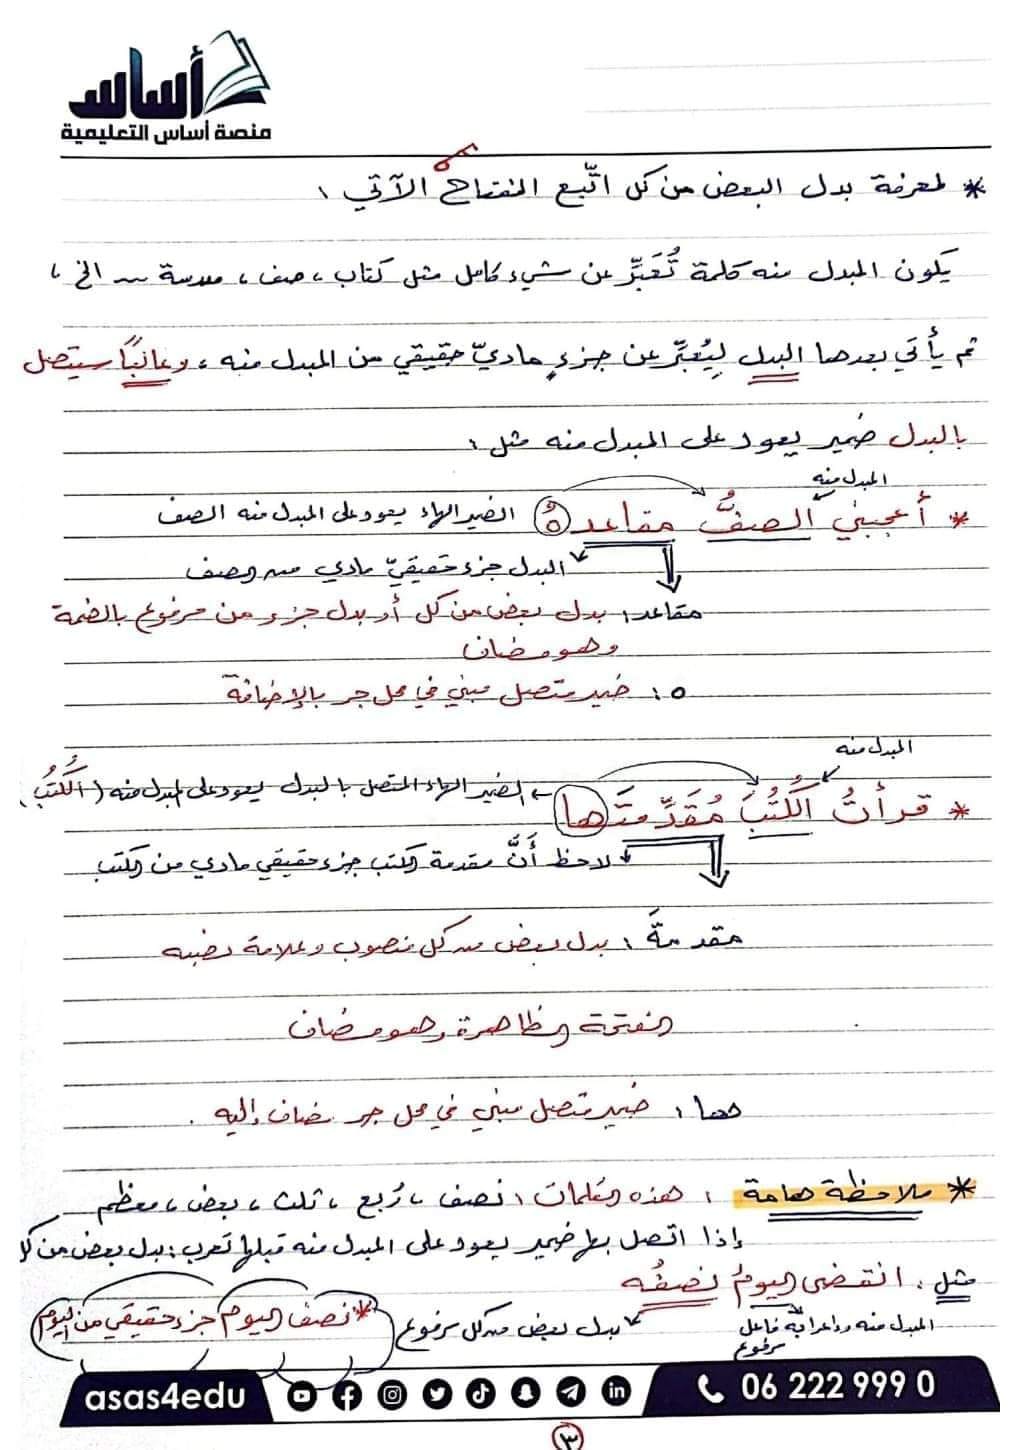 أساس
منصة أساس التعليمية
* لمعرفة بدل البعض من كل اتّبع المفتاح الآتي :
يكون المبدل منه كلمة تُعَبِّر عن شيء كامل مثل كتاب ، صف ، مدرسة ... الخ ،
ثم يأتي بعدها البدل لِيُعَبِّر عن جزءٍ ماديّ حقيقي من المبدل منه ، وغالبًا سيتصل
بالبدل ضمير يعود على المبدل منه مثل :
المبدل منه
* أعجبني الصفُّ مقاعدهُ الضمير الهاء يعود على المبدل منه الصف
البدل جزء حقيقيّ مادي من الصف
مقاعد : بدل بعض من كل أو بدل جزء من مرفوع بالضمة
وهو مضاف
ه : ضمير متصل مبني في محل جر بالإضافة
المبدل منه
* قرأتُ الكُتُبَ مُقَدِّمَتَها الضمير الهاء المتصل بالبدل يعود على المبدل منه (الكُتُبُ)
لاحظ أَنَّ مقدمة الكتب جزء حقيقي مادي من الكتب
مقدمةَ : بدل بعض من كل منصوب وعلامة نصبه
الفتحة الظاهرة وهو مضاف
ها : ضمير متصل مبني في محل جر مضاف إليه .
* ملاحظة هامة : هذه الكلمات : نصف ، رُبع ، ثلث ، بعض ، معظم
إذا اتصل بها ضمير يعود على المبدل منه قبلها تعرب : بدل بعض من كل
مثل : انقضى اليومُ نصفُه
المبدل منه وإعرابه فاعل مرفوع
بدل بعض من كل مرفوع
* نصف اليوم جزء حقيقي من اليوم
asas4edu
06 222 999 0
٣